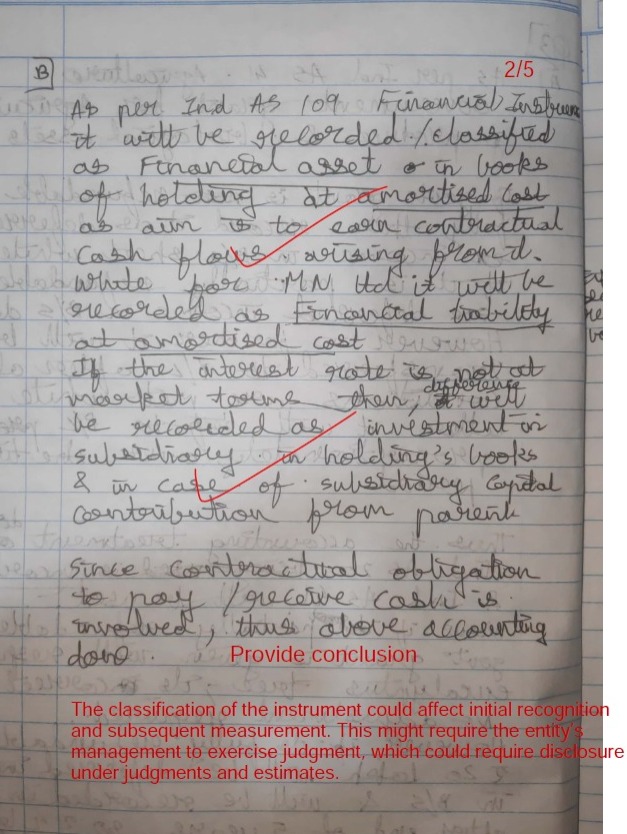 2/5
B
As per Ind AS 109 Financial Instrum
it will be recorded / classified
as Financial asset in books
of holding at amortised cost
as aim is to earn contractual
cash flows arising from it.
While for MN ltd it will be
recorded as Financial liability
at amortised cost
If the interest rate is not at
market terms then, difference will
be recorded as investment in
subsidiary in holding's books
& in case of subsidiary capital
contribution from parent
Since contractual obligation
to pay / receive cash is
involved, thus above accounting
done.
Provide conclusion
The classification of the instrument could affect initial recognition
and subsequent measurement. This might require the entity's
management to exercise judgment, which could require disclosure
under judgments and estimates.